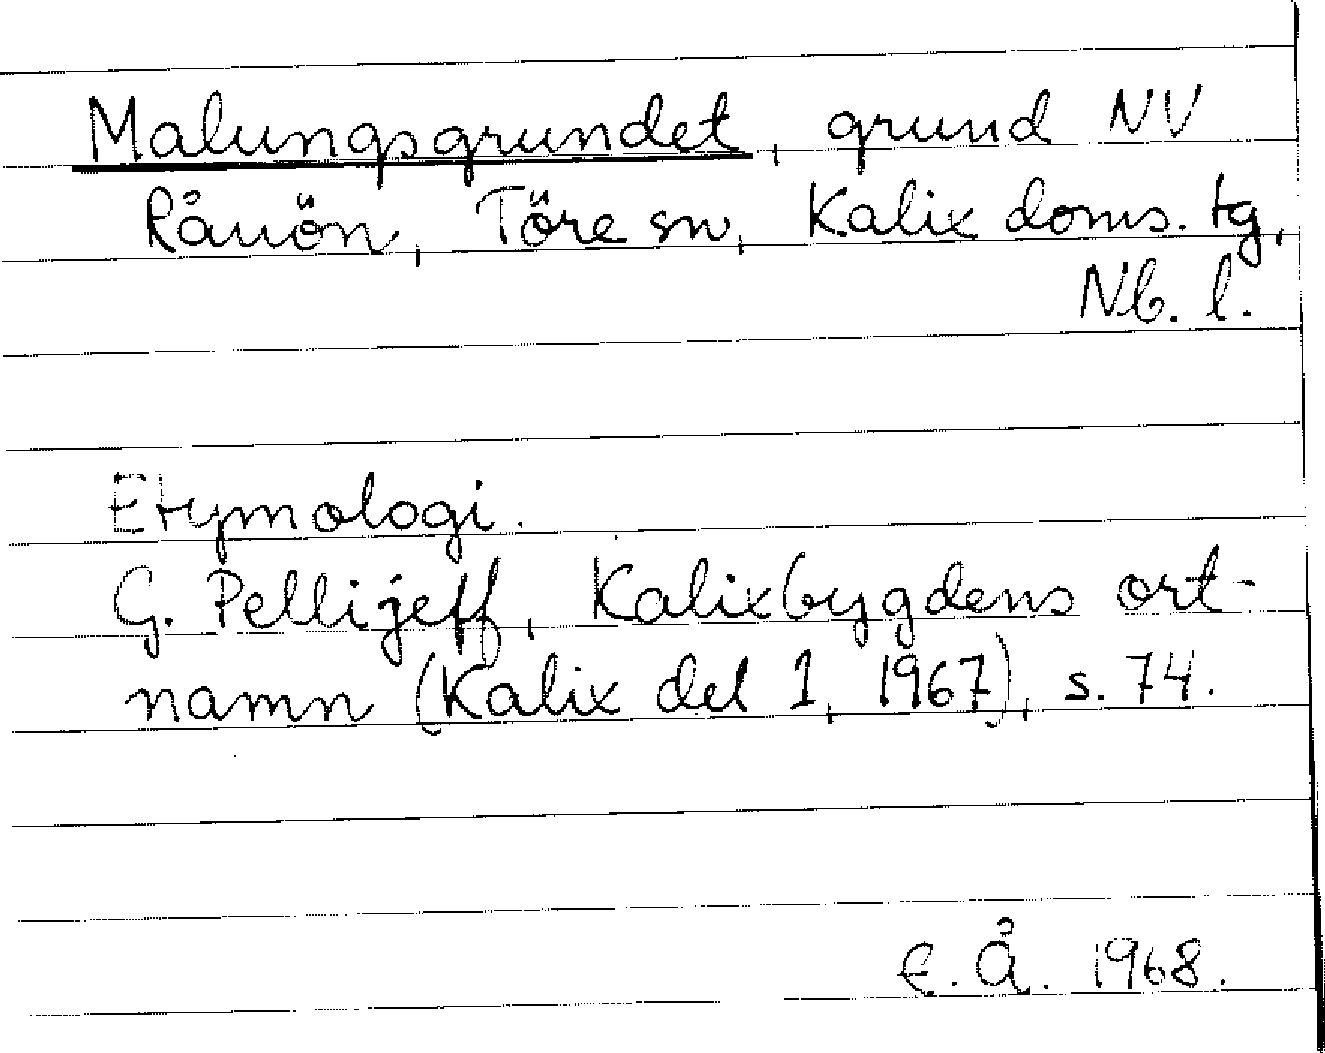 Malungsgrundet, grund NV
Rånön, Töre sn, Kalix doms. tg,
Nb. l.
Etymologi.
G. Pellijeff, Kalixbygdens ort-
namn (Kalix del 1, 1967), s. 74.
E. Å. 1968.